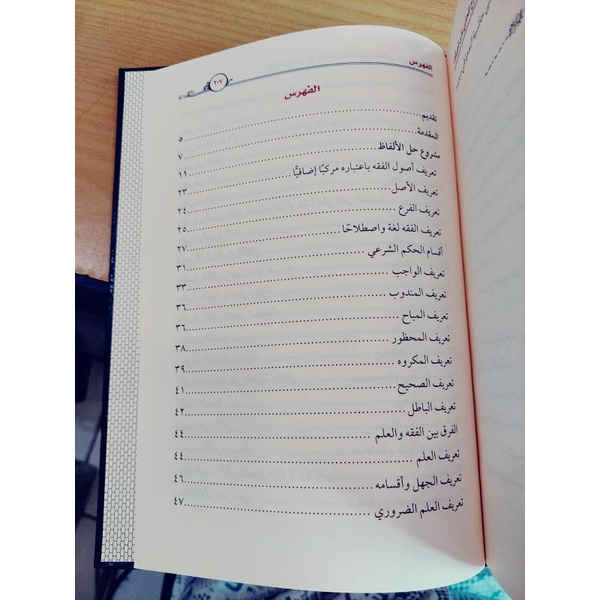 الفهرس ٢٠٧
الفهرس
تقديم ........ ٥
المقدمة ........ ٧
مشروع حل الألفاظ ........ ١١
تعريف أصول الفقه باعتباره مركبًا إضافيًّا ........ ٢٣
تعريف الأصل ........ ٢٤
تعريف الفرع ........ ٢٥
تعريف الفقه لغة واصطلاحًا ........ ٢٧
أقسام الحكم الشرعي ........ ٣١
تعريف الواجب ........ ٣٣
تعريف المندوب ........ ٣٦
تعريف المباح ........ ٣٦
تعريف المحظور ........ ٣٨
تعريف المكروه ........ ٣٩
تعريف الصحيح ........ ٤١
تعريف الباطل ........ ٤٢
الفرق بين الفقه والعلم ........ ٤٤
تعريف العلم ........ ٤٤
تعريف الجهل وأقسامه ........ ٤٦
تعريف العلم الضروري ........ ٤٧